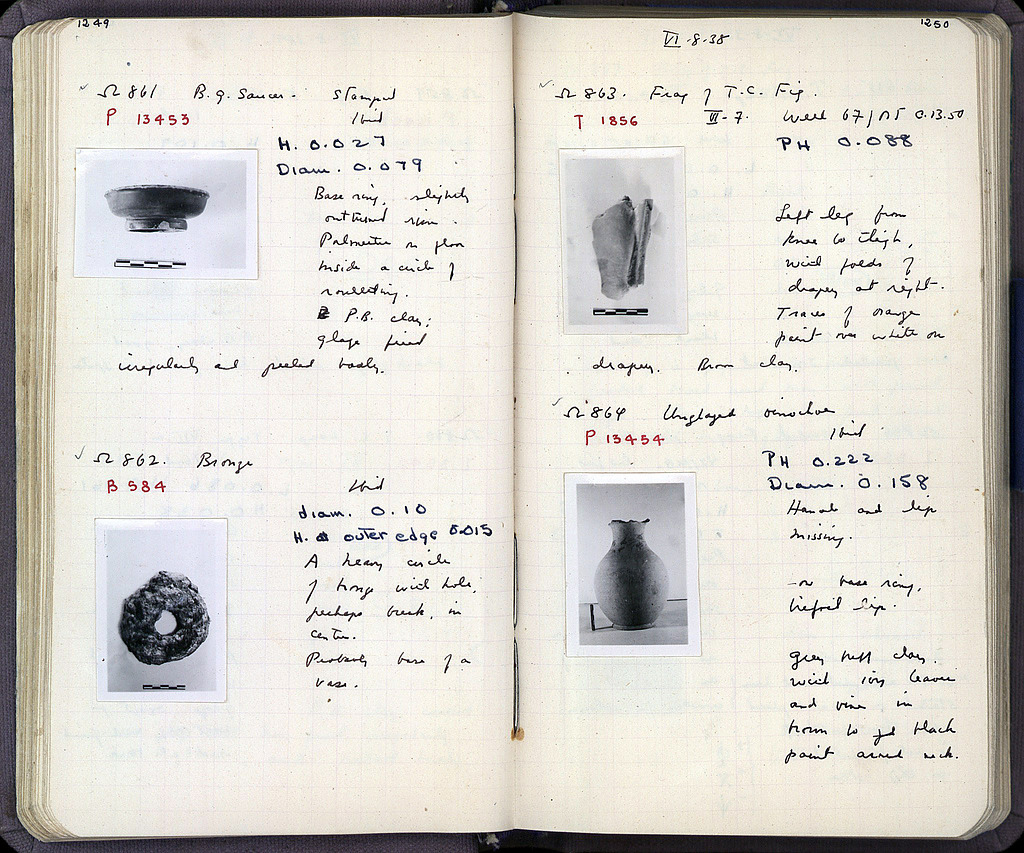 1249
Ω 861 B.g. Saucer. Stamped
P 13453 Ibid
H. 0.027
Diam. 0.079
Base ring, slightly
outturned rim.
Palmettes on floor
inside a circle of
rouletting.
P.B. clay;
glaze fired
irregularly and peeled badly.
Ω 862. Bronze
B 584 Ibid
diam. 0.10
H. at outer edge 0.015
A heavy circle
of bronze with hole,
perhaps break, in
center.
Probably base of a
vase.
1250
VI-8-38
Ω 863. Frag of T.C. Fig.
T 1856 III-7. Well 67/ 0.13.50
PH 0.088
Left leg from
knee to thigh,
with folds of
drapery at right.
Traces of orange
paint over white on
drapery. Brown clay.
Ω 864 Unglazed oinochoe
P 13454 Ibid
PH 0.222
Diam. 0.158
Handle and lip
missing.
base ring,
trefoil lip.
Grey buff clay.
with ivy leaves
and vine in
brown to black
paint around neck.